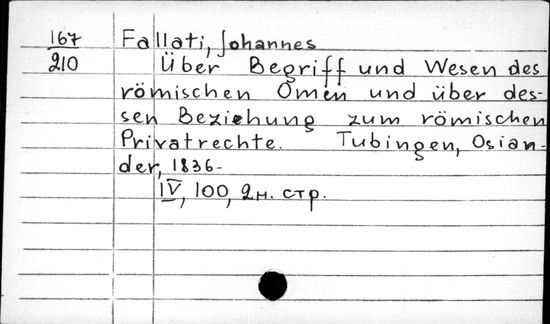 167 Fallati, Johannes
210 Über Begriff und Wesen des
römischen Omen und über des-
sen Beziehung zum römischen
Privatrechte. Tubingen, Osian-
der, 1836.
IV, 100, 2н. стр.